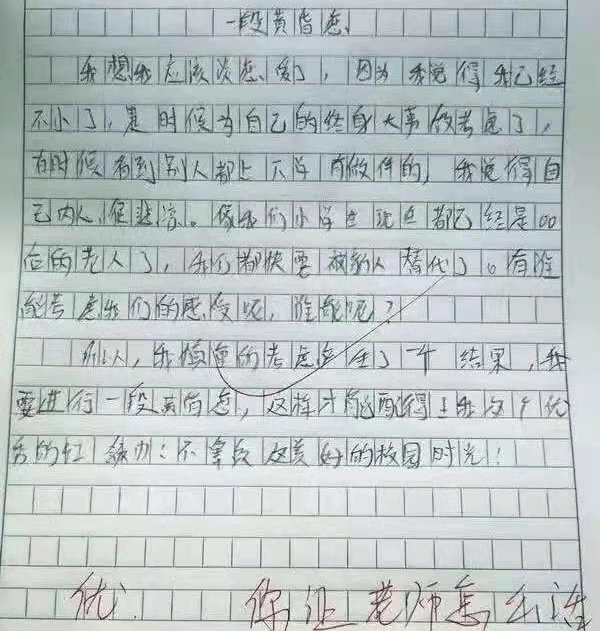 一段黄昏恋
我想我应该谈恋爱了，因为我觉得我已经
不小了，是时候为自己的终身大事做考虑了，
有时候看到别人都上下学有做伴的，我觉得自
己内人很悲凉。像我们小学生现在都已经是00
后的老人了，我们都快要被新人替代了。有谁
能考虑我们的感受呢，谁能呢？
所以，我慎重的考虑 了一个结果，我
要进行一段黄昏恋，这样才能配得上我这个优
秀的红领巾：不辜负这美好的校园时光！
优 你让老师怎么活